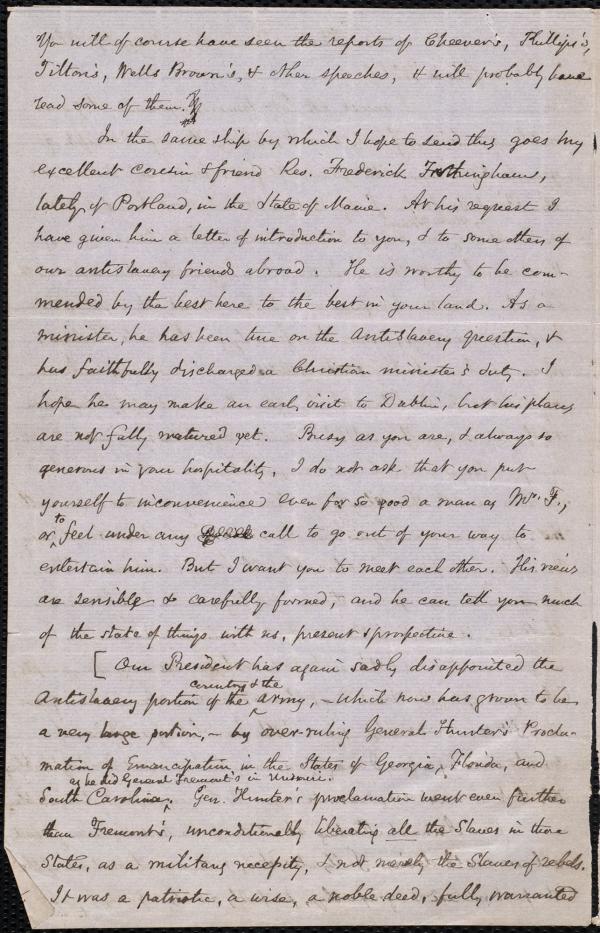 You will of course have seen the reports of Cheever's, Phillips's,
Tilton's, Wells Brown's, & other speeches, & will probably have
read some of them.
In the same ship by which I hope to send this, goes my
excellent cousin & friend Rev. Frederick Frothingham,
lately of Portland, in the State of Maine. At his request I
have given him a letter of introduction to you, & to some others of
our antislavery friends abroad. He is worthy to be com-
mended by the best here to the best in your land. As a
minister, he has been true on the Antislavery question, &
has faithfully discharged a Christian minister's duty. I
hope he may make an early visit to Dublin, but his plans
are not fully matured yet. Busy as you are, & always so
generous in your hospitality, I do not ask that you put
yourself to inconvenience even for so good a man as Mr. F.,
or to feel under any call to go out of your way to
entertain him. But I want you to meet each other. His views
are sensible & carefully formed, and he can tell you much
of the state of things with us, present & prospective.
[ Our President has again sadly disappointed the
country & the
Antislavery portion of the army, – which now has grown to be
a very large portion, – by over-ruling General Hunter's Procla-
mation of Emancipation in the States of Georgia, Florida, and
as he did General Fremont's in Missouri.
South Carolina. Gen. Hunter's proclamation went even further
than Fremont's, unconditionally liberating all the Slaves in those
States, as a military necessity, & not merely the Slaves of rebels.
It was a patriotic, a wise, a noble deed, fully warranted